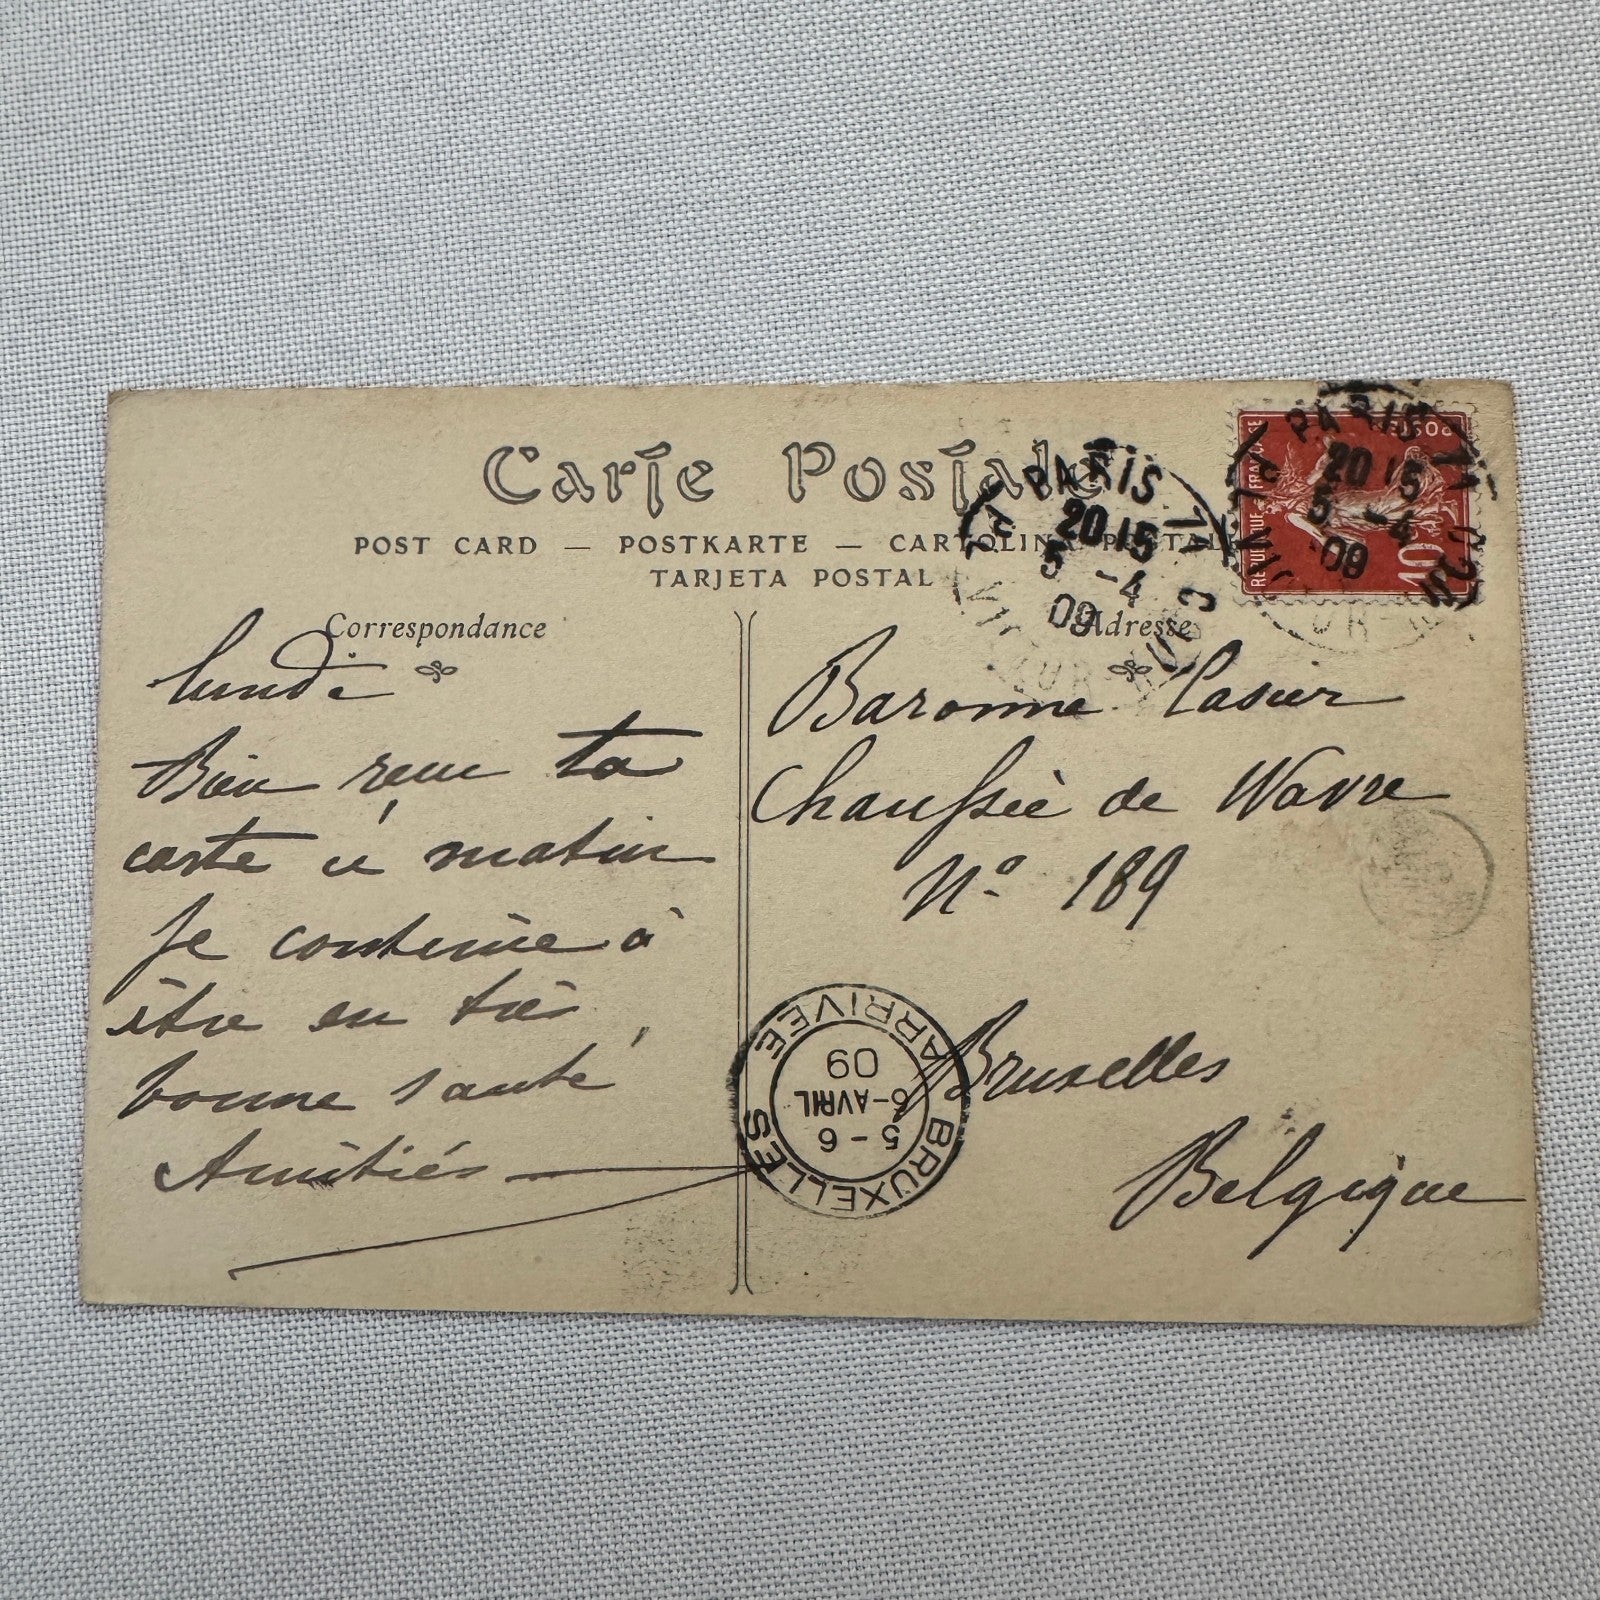 Carte Postale
POST CARD — POSTKARTE — CARTOLINA POSTALE
TARJETA POSTAL
Correspondance
lundi
Bien reçu ta
carte ce matin
Je continue à
être en très
bonne santé,
Amitiés
Adresse
Baronne
Chaussée de Wavre
Nº 189
Bruxelles
Belgique
PARIS
20 15
5 -4
09
PARIS
20 15
5 -4
09
REPUBLIQUE FRANCAISE
POSTES
10
BRUXELLES
5-6
6-AVRIL
09
ARRIVEE